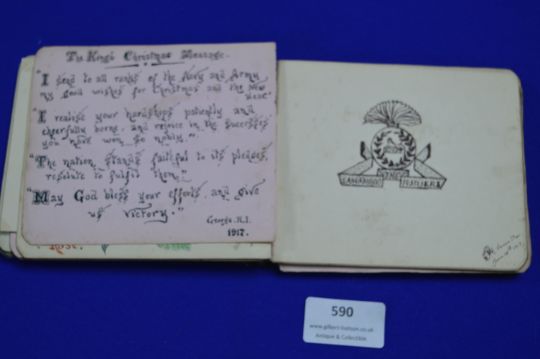 The King's Christmas Message.
"I send to all ranks of the Navy and Army
my good wishes for Christmas and the New
Year.
"I realise your hardships patiently and
cheerfully borne, and rejoice in the successes
you have won so nobly."
"The nation stands faithful to its pledges,
resolute to fulfil them."
"May God bless your efforts and give
us victory."
George R.I.
1917.
THE
LANCASHIRE FUSILIERS
590
www.gilbert-baitson.co.uk
Antique & Collectible